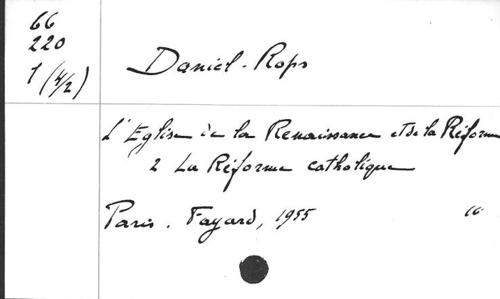 66
220
1 (4/2)
Daniel-Rops
L'Eglise de la Renaissance et de la Réforme
2 La Réforme catholique
Paris. Fayard, 1955 16